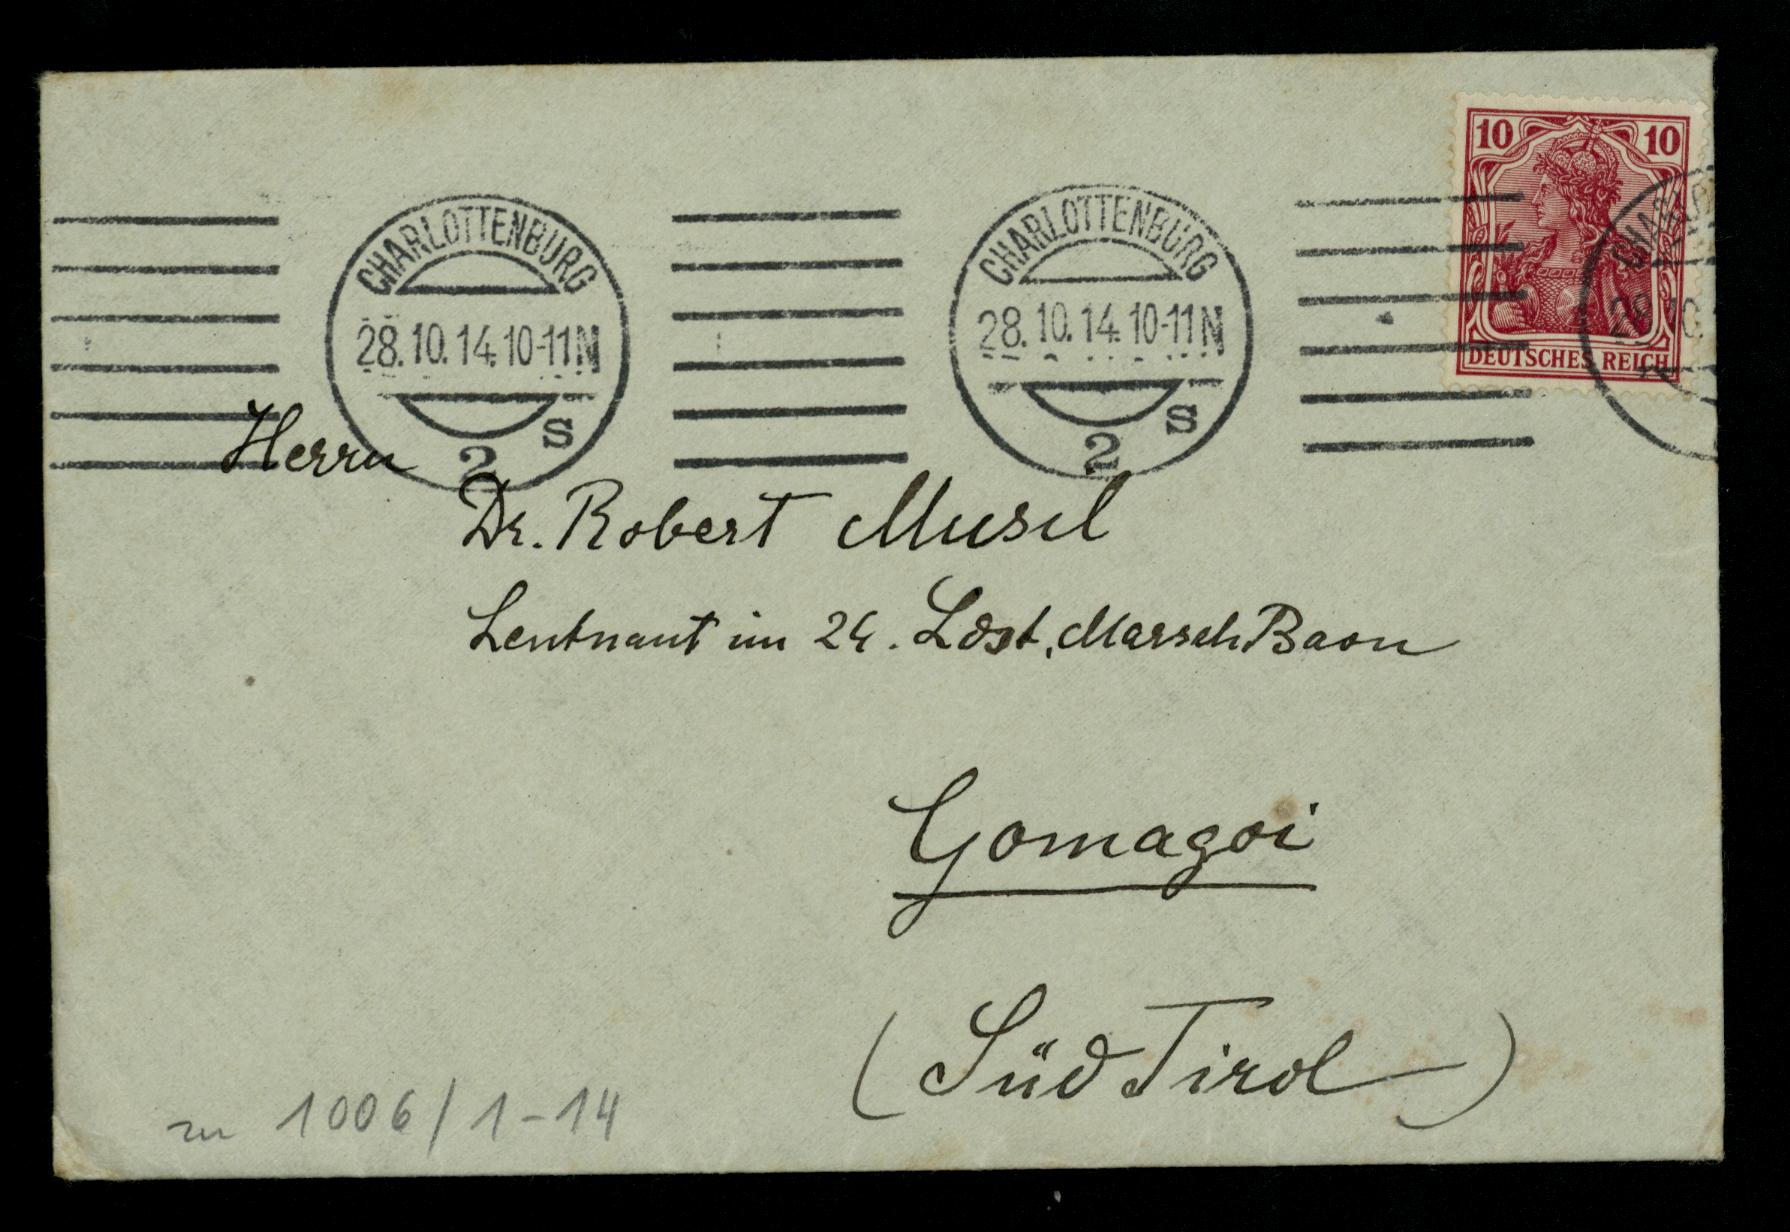 10 10
DEUTSCHES REICH
CHARLOTTENBURG
28.10.14.10-11N
2 s
CHARLOTTENBURG
28.10.14.10-11N
2 s
Herrn
Dr. Robert Musil
Leutnant im 24. Ldst. MarschBaon
Gomagoi
(SüdTirol)
zu 1006/1-14